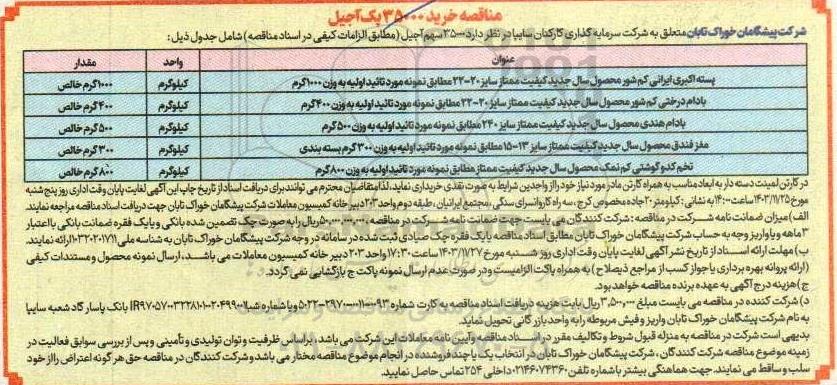 مناقصه خرید ۳۵۰۰۰ پک آجیل
شرکت پیشگامان خوراک تابان متعلق به شرکت سرمایه گذاری کارکنان سایپا در نظر دارد ۳۵۰۰۰ سهم آجیل (مطابق الزامات کیفی در اسناد مناقصه) شامل جدول ذیل:
عنوان واحد مقدار
پسته اکبری ایرانی کم شور محصول سال جدید کیفیت ممتاز سایز ۲۰-۲۲ مطابق نمونه مورد تائید اولیه به وزن ۱۰۰۰ گرم کیلوگرم ۱۰۰۰ گرم خالص
بادام درختی کم شور محصول سال جدید کیفیت ممتاز سایز ۲۰-۲۲ مطابق نمونه مورد تائید اولیه به وزن ۴۰۰ گرم کیلوگرم ۴۰۰ گرم خالص
بادام هندی محصول سال جدید کیفیت ممتاز سایز ۲۴۰ مطابق نمونه مورد تائید اولیه به وزن ۵۰۰ گرم کیلوگرم ۵۰۰ گرم خالص
مغز فندق محصول سال جدید کیفیت ممتاز سایز ۱۳-۱۵ مطابق نمونه مورد تائید اولیه به وزن ۳۰۰ گرم بسته بندی کیلوگرم ۳۰۰ گرم خالص
تخم کدو گوشتی کم نمک محصول سال جدید کیفیت ممتاز مطابق نمونه مورد تائید اولیه به وزن ۸۰۰ گرم کیلوگرم ۸۰۰ گرم خالص
در کارتن لمینت دسته دار به ابعاد مناسب به همراه کارتن مادر مورد نیاز خود را از واجدین شرایط به صورت نقدی خریداری نماید، لذا متقاضیان محترم می توانند برای دریافت اسناد از تاریخ چاپ این آگهی لغایت پایان وقت اداری روز پنج شنبه
مورخ ۱۴۰۳/۱۱/۲۵ ساعت ۱۴:۰۰ به نشانی: کیلومتر ۲۰ جاده مخصوص کرج، سه راه کاروانسرای سنگی، مجتمع ایرانیان، طبقه دوم واحد ۲۰۳ دبیرخانه کمیسیون معاملات شرکت پیشگامان خوراک تابان جهت دریافت اسناد مناقصه مراجعه نمایند.
الف) میزان ضمانت نامه شرکت در مناقصه: شرکت کنندگان می بایست جهت ضمانت نامه شرکت در مناقصه ریال را به صورت چک تضمین شده بانکی و یا یک فقره ضمانت بانکی با اعتبار
۳ ماهه و یا واریز وجه به حساب شرکت پیشگامان خوراک تابان مطابق اسناد مناقصه یا یک فقره چک صیادی ثبت شده در سامانه در وجه شرکت پیشگامان خوراک تابان به شناسه ملی ارائه نمایند.
ب) مهلت ارائه اسناد از تاریخ نشر آگهی لغایت پایان وقت اداری روز شنبه مورخ ۱۴۰۳/۱۱/۲۷ ساعت ۱۷:۳۰ واحد ۲۰۳ دبیرخانه کمیسیون معاملات می باشد، ارسال نمونه محصول و مستندات کیفی
(ارائه پروانه بهره برداری یا جواز کسب از مراجع ذیصلاح) به همراه پاکت الزامیست و در صورت عدم ارسال نمونه پاکت ج بازگشایی نمی گردد.
ج) هزینه درج آگهی به عهده برنده مناقصه خواهد بود.
د) شرکت کننده در مناقصه می بایست مبلغ ریال بابت هزینه دریافت اسناد مناقصه به کارت شماره و یا شماره شبا بانک پاسارگاد شعبه سایپا
به نام شرکت پیشگامان خوراک تابان واریز و فیش مربوطه را به واحد بازرگانی تحویل نماید.
بدیهی است شرکت در مناقصه به منزله قبول شروط و تکالیف مقرر در اسناد مناقصه و آیین نامه معاملات این شرکت می باشد، براساس ظرفیت و توان تولیدی و تأمینی و پس از بررسی سوابق فعالیت در
زمینه موضوع مناقصه شرکت کنندگان، شرکت پیشگامان خوراک تابان در انتخاب یک یا چند فروشنده در انجام موضوع مناقصه مختار می باشد و شرکت کنندگان در مناقصه حق هر گونه اعتراض را از خود
سلب و ساقط می نمایند. جهت هماهنگی بیشتر با شماره تلفن ۰۲۱۴۶۰۷۴۳۶۰ داخلی ۲۵۴ تماس حاصل نمایید.